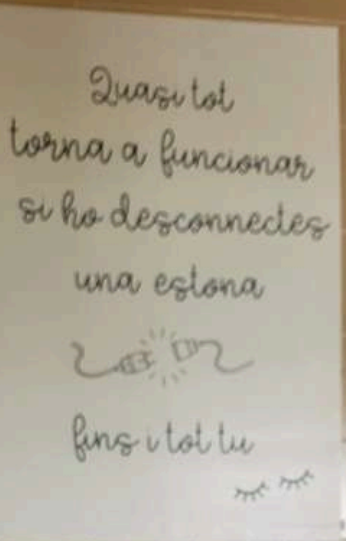 Quasi tot
torna a funcionar
si ho desconnectes
una estona
fins i tot tu